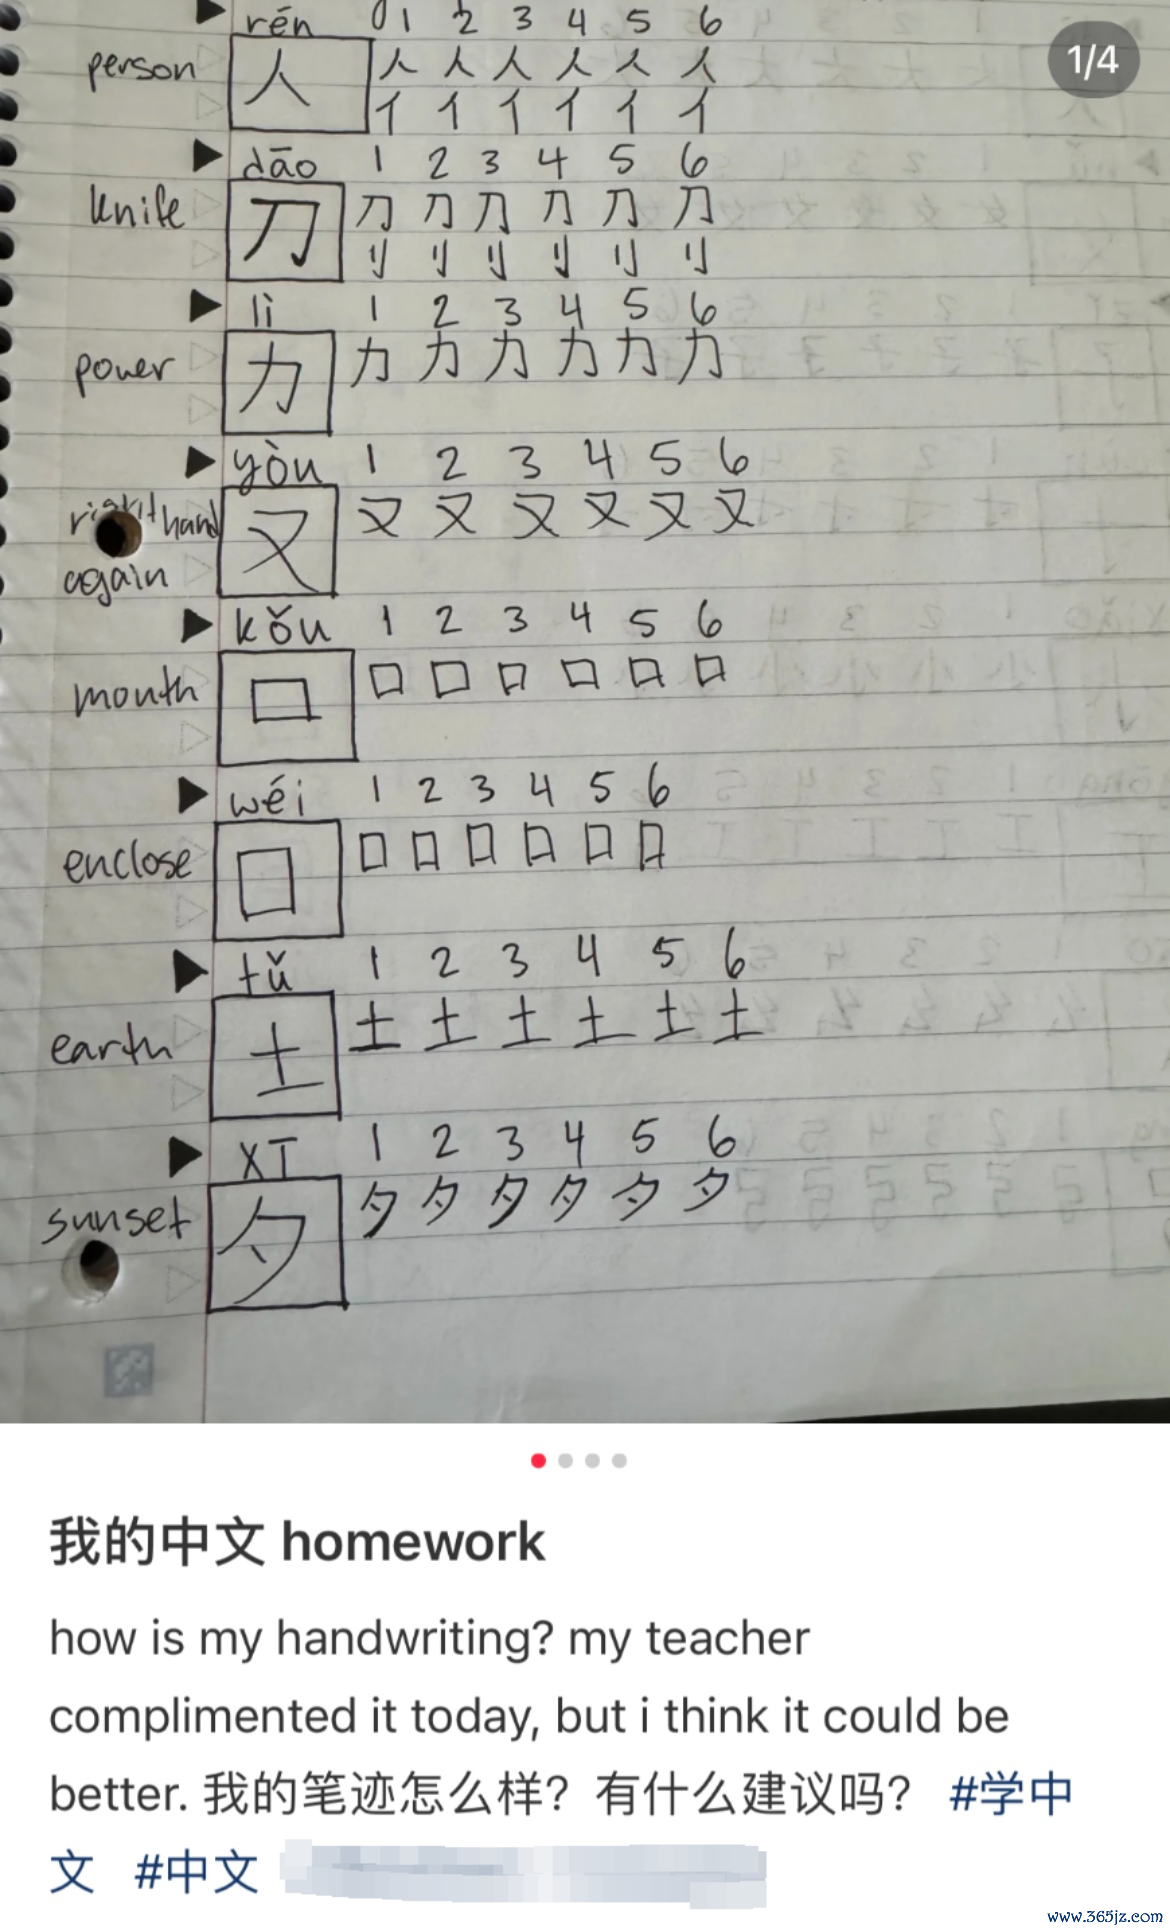 rén 1 2 3 4 5 6
person 人 人 人 人 人 人 人
亻 亻 亻 亻 亻 亻
dāo 1 2 3 4 5 6
knife 刀 刀 刀 刀 刀 刀 刀
刂 刂 刂 刂 刂 刂
lì 1 2 3 4 5 6
power 力 力 力 力 力 力 力
yòu 1 2 3 4 5 6
right hand 又 又 又 又 又 又 又
again
kǒu 1 2 3 4 5 6
mouth 口 口 口 口 口 口 口
wéi 1 2 3 4 5 6
enclose 囗 囗 囗 囗 囗 囗 囗
tǔ 1 2 3 4 5 6
earth 土 土 土 土 土 土 土
xī 1 2 3 4 5 6
sunset 夕 夕 夕 夕 夕 夕 夕
1/4
我的中文 homework
how is my handwriting? my teacher
complimented it today, but i think it could be
better. 我的笔迹怎么样？有什么建议吗？ #学中
文 #中文
www.365jz.com